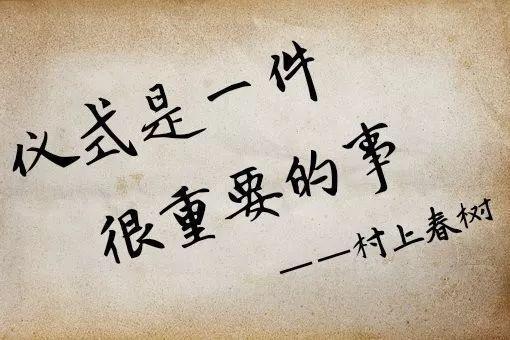 仪式是一件
很重要的事
——村上春树